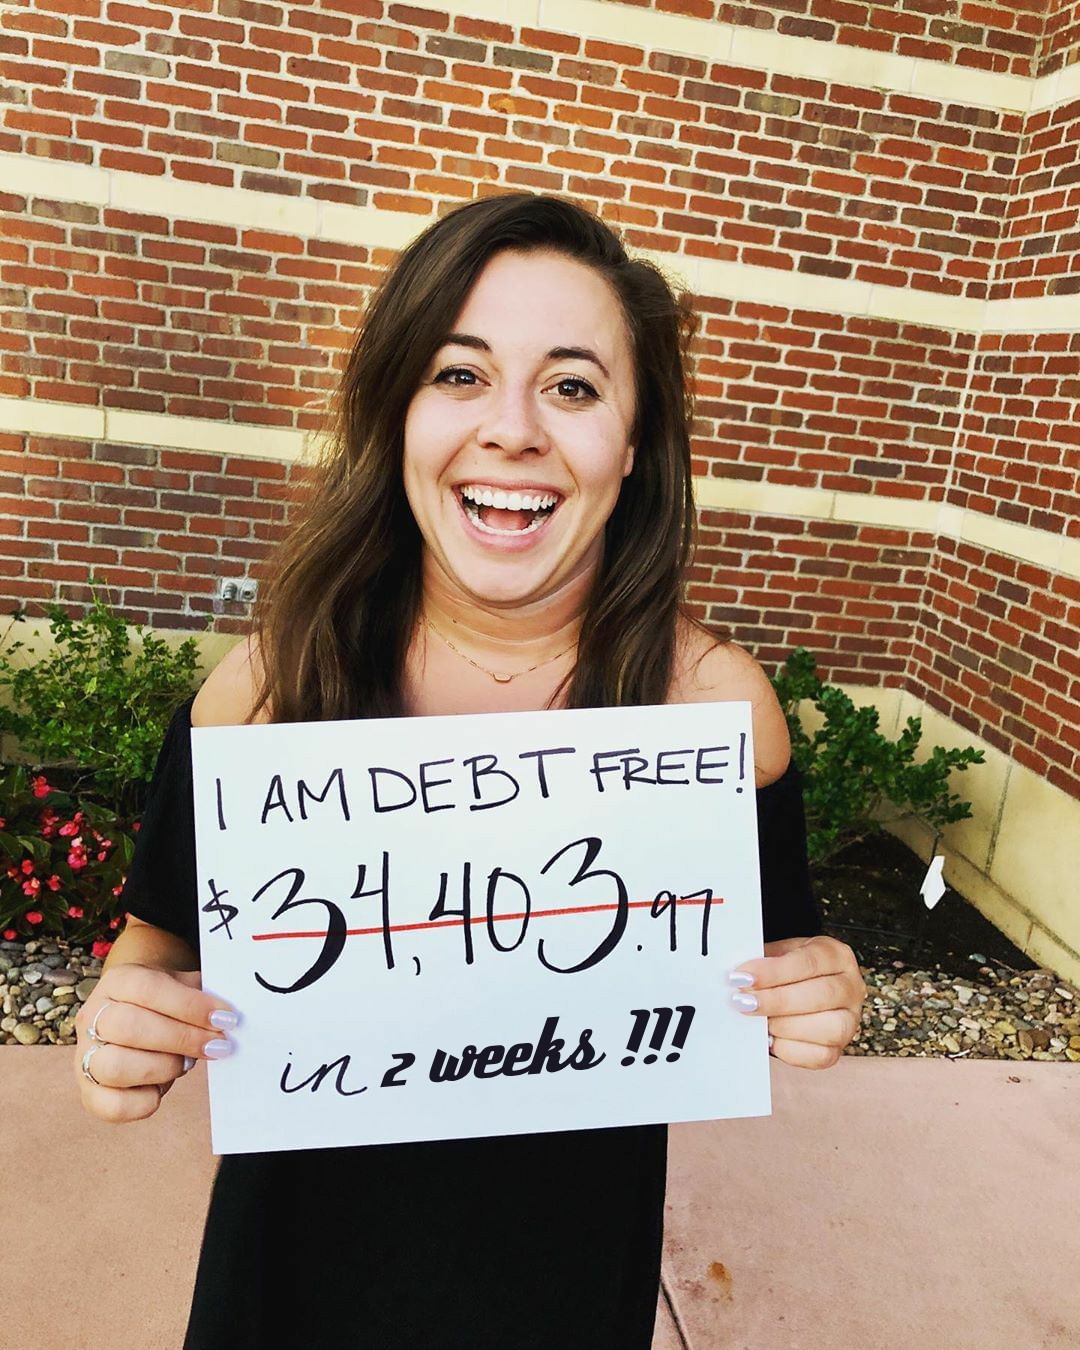 I AM DEBT FREE!
$34,403.97
in 2 weeks !!!